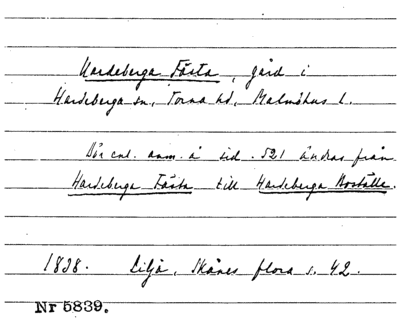 Hardeberga Fästa, gård i
Hardeberga sn, Torna hd, Malmöhus l.
Bör enl. anm. å sid. 521 ändras från
Hardeberga Fästa till Hardeberga Boställe.
1838. Lilja, Skånes flora s. 42.
Nr 5839.